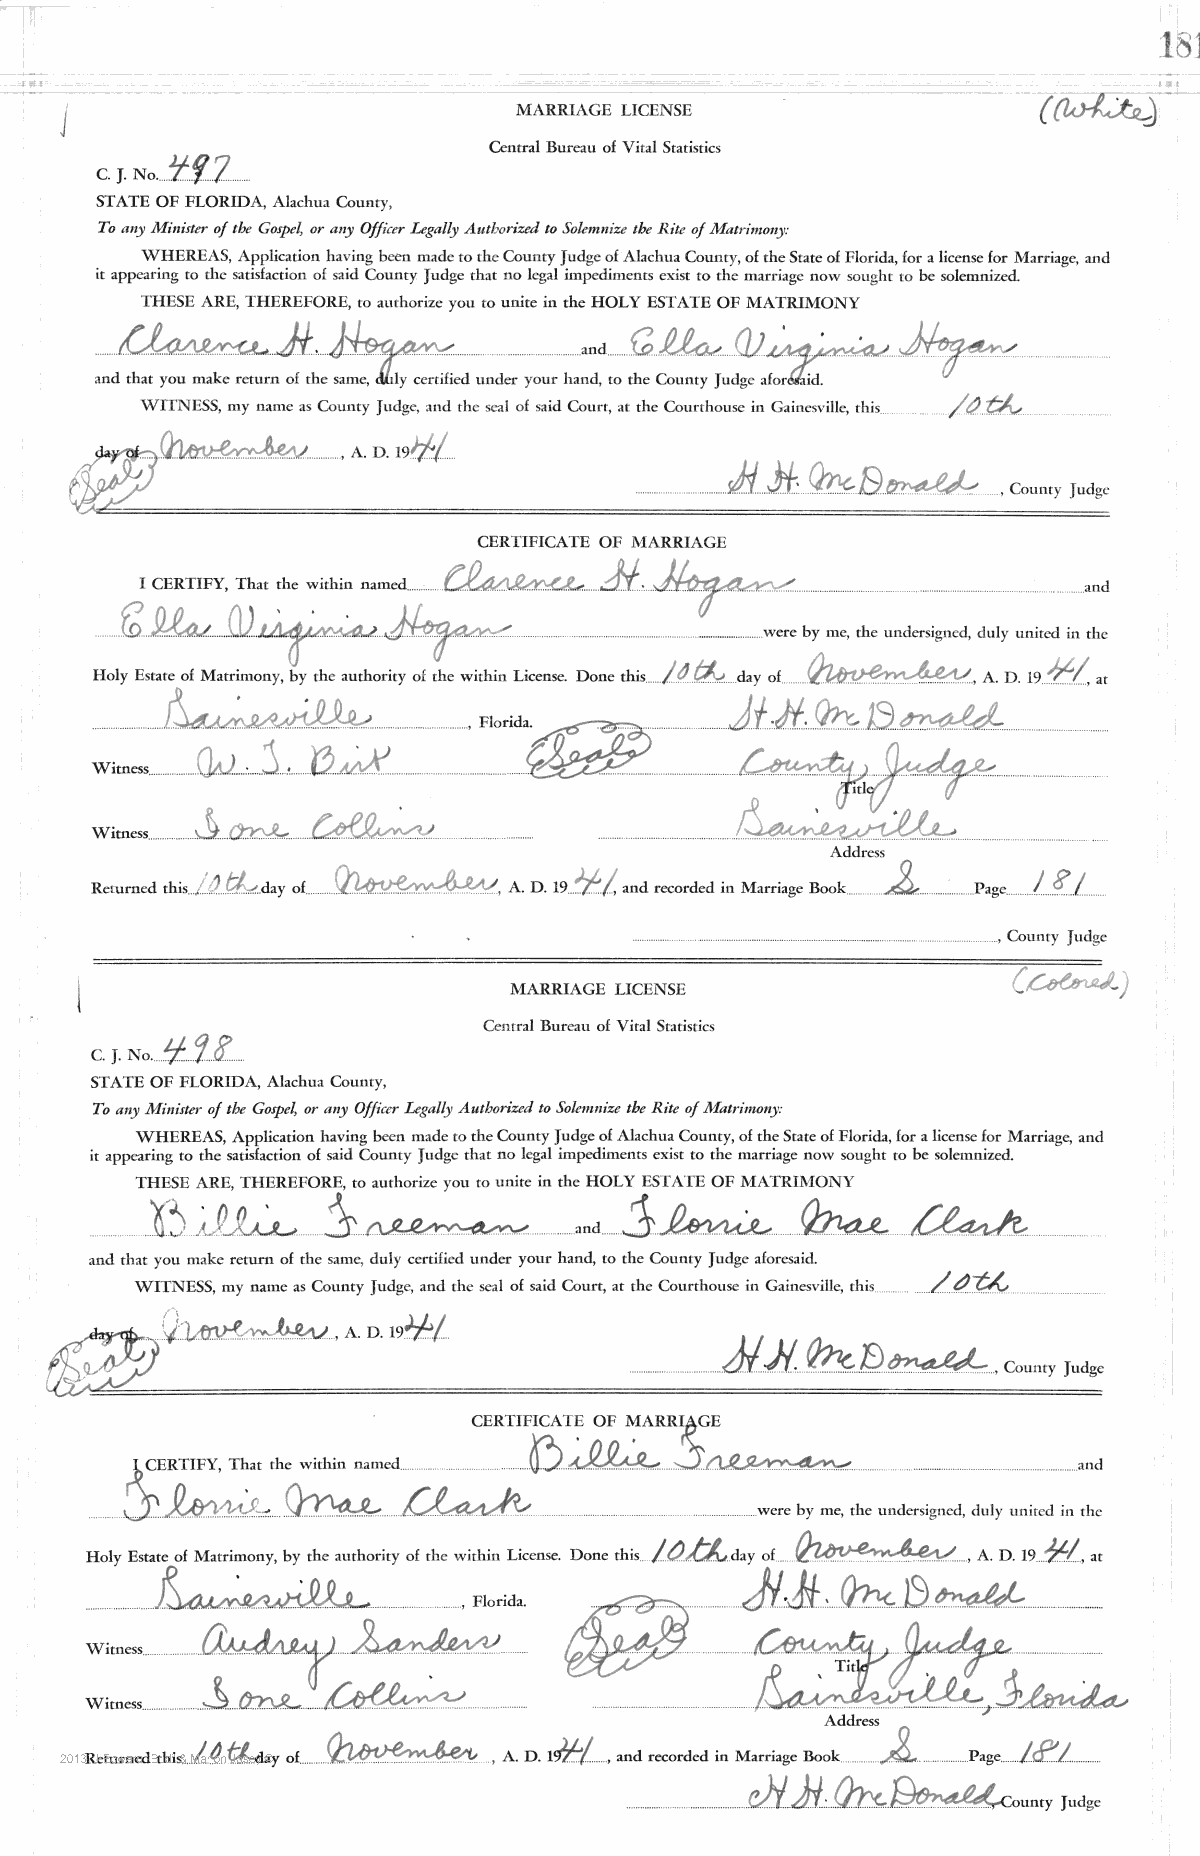 181
MARRIAGE LICENSE (White)
Central Bureau of Vital Statistics
C. J. No. 497
STATE OF FLORIDA, Alachua County,
To any Minister of the Gospel, or any Officer Legally Authorized to Solemnize the Rite of Matrimony:
WHEREAS, Application having been made to the County Judge of Alachua County, of the State of Florida, for a license for Marriage, and
it appearing to the satisfaction of said County Judge that no legal impediments exist to the marriage now sought to be solemnized.
THESE ARE, THEREFORE, to authorize you to unite in the HOLY ESTATE OF MATRIMONY
Clarence H. Hogan and Ella Virginia Hogan
and that you make return of the same, duly certified under your hand, to the County Judge aforesaid.
WITNESS, my name as County Judge, and the seal of said Court, at the Courthouse in Gainesville, this 10th
day of November, A. D. 1941
Seal
H H. McDonald, County Judge
CERTIFICATE OF MARRIAGE
I CERTIFY, That the within named Clarence H. Hogan and
Ella Virginia Hogan were by me, the undersigned, duly united in the
Holy Estate of Matrimony, by the authority of the within License. Done this 10th day of November, A. D. 1941, at
Gainesville, Florida. H. H. McDonald
Witness W. T. Birt Seal County Judge
Title
Witness Ione Collins Gainesville
Address
Returned this 10th day of November, A. D. 1941, and recorded in Marriage Book S Page 181
, County Judge
MARRIAGE LICENSE (Colored)
Central Bureau of Vital Statistics
C. J. No. 498
STATE OF FLORIDA, Alachua County,
To any Minister of the Gospel, or any Officer Legally Authorized to Solemnize the Rite of Matrimony:
WHEREAS, Application having been made to the County Judge of Alachua County, of the State of Florida, for a license for Marriage, and
it appearing to the satisfaction of said County Judge that no legal impediments exist to the marriage now sought to be solemnized.
THESE ARE, THEREFORE, to authorize you to unite in the HOLY ESTATE OF MATRIMONY
Billie Freeman and Florrie Mae Clark
and that you make return of the same, duly certified under your hand, to the County Judge aforesaid.
WITNESS, my name as County Judge, and the seal of said Court, at the Courthouse in Gainesville, this 10th
day of November, A. D. 1941
Seal
H H. McDonald, County Judge
CERTIFICATE OF MARRIAGE
I CERTIFY, That the within named Billie Freeman and
Florrie Mae Clark were by me, the undersigned, duly united in the
Holy Estate of Matrimony, by the authority of the within License. Done this 10th day of November, A. D. 1941, at
Gainesville, Florida. H. H. McDonald
Witness Audrey Sanders Seal County Judge
Title
Witness Ione Collins Gainesville, Florida
Address
Returned this 10th day of November, A. D. 1941, and recorded in Marriage Book S Page 181
H H. McDonald, County Judge